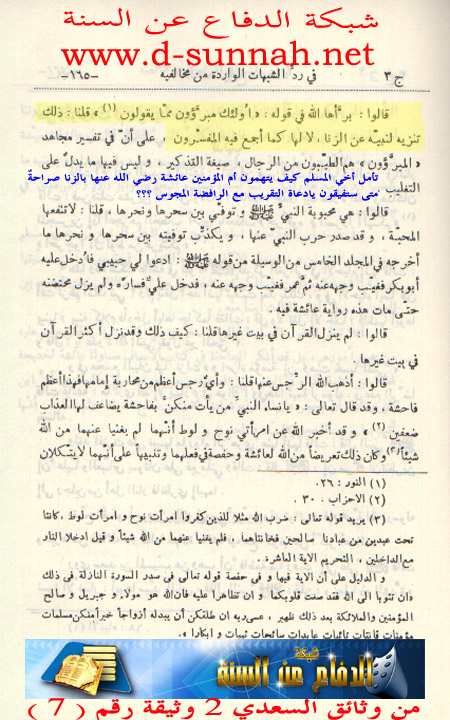 شبكة الدفاع عن السنة
www.d-sunnah.net
ج ٣ في ردّ الشبهات الواردة من مخالفيه -١٦٥-
قالوا : برّأها الله في قوله : « أولئك مبرّؤون ممّا يقولون (١) » قلنا : ذلك
تنزيه لنبيّه عن الزنا ، لا لها كما أجمع فيه المفسّرون ، على أنّ في تفسير مجاهد
« المبرّؤون » هم الطيّبون من الرجال ، صيغة التذكير ، و ليس فيها ما يدلّ على
التغليب
تأمل أخي المسلم كيف يتهمون أم المؤمنين عائشة رضي الله عنها بالزنا صراحة
متى ستفيقون يادعاة التقريب مع الرافضة المجوس ؟؟؟
قالوا : هي محبوبة النبيّ ﷺ و توفّي بين سحرها و نحرها ، قلنا : لا تنفعها
المحبّة ، و قد صدر حرب النبيّ عنها ، و يكذّب توفيته بين سحرها و نحرها ما
أخرجه في المجلد الخامس من الوسيلة من قوله ﷺ : ادعوا لي حبيبي فادخل عليه
أبو بكر فغيّب وجهه عنه ثمّ عمر فغيّب وجهه عنه ، فدخل عليّ فسارّه و لم يزل محتضنه
حتّى مات هذه رواية عائشة فيه .
قالوا : لم ينزل القرآن في بيت غيرها قلنا : كيف ذلك وقد نزل أكثر القرآن
في بيت غيرها .
قالوا : أذهب الله الرّجس عنها قلنا : وأيّ رجس أعظم من محاربة إمامها فهذا أعظم
فاحشة ، و قد قال تعالى : « يا نساء النبيّ من يأت منكنّ بفاحشة يضاعف لها العذاب
ضعفين (٢) » و قد أخبر الله عن امرأتي نوح و لوط أنّهما لم يغنيا عنهما من الله
شيئاً (٣) و كان ذلك تعريضاً من الله لعائشة و حفصة في فعلهما و تنبيهاً على أنّهما لا يتّكلان
(١) النور : ٢٦.
(٢) الاحزاب : ٣٠ .
(٣) يريد قوله تعالى : ضرب الله مثلا للذين كفروا امرأت نوح و امرأت لوط ، كانتا
تحت عبدين من عبادنا صالحين فخانتاهما ، فلم يغنيا عنهما من الله شيئاً و قيل ادخلا النار
مع الداخلين ، التحريم الاية العاشرة .
و الدليل على أن الاية فيها و في حفصة قوله تعالى في صدر السورة النازلة في ذلك
«ان تتوبا الى الله فقد صغت قلوبكما و ان تظاهرا عليه فان الله هو مولاه و جبريل و صالح
المؤمنين و الملائكة بعد ذلك ظهير ، عسى ربه ان طلقكن أن يبدله أزواجاً خيراً منكن مسلمات
مؤمنات قانتات تائبات عابدات سائحات ثيبات و أبكارا » .
شبكة
الدفاع عن السنة
من وثائق السعدي 2 وثيقة رقم ( 7 )